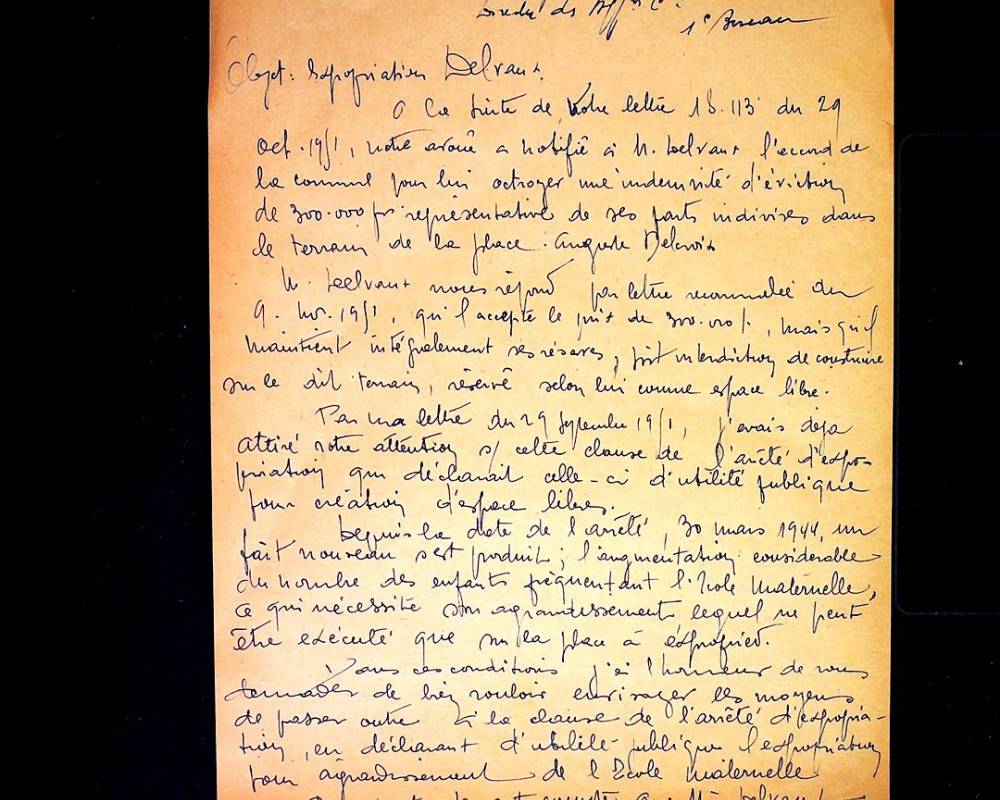 1e Bureau
Objet: Expropriation Delvaux.
A la suite de votre lettre 18.113 du 29
oct. 1951, notre avoué a notifié à M. Delvaux l'accord de
la commune pour lui octroyer une indemnité d'éviction
de 300.000 frs représentative de ses parts indivises dans
le terrain de la place Auguste Delcroix
M. Delvaux nous répond par lettre recommandée du
9. nov. 1951, qu'il accepte le prix de 300.000 f., mais qu'il
maintient intégralement ses réserves, soit interdiction de construire
sur le dit terrain, réservé selon lui comme espace libre.
Par ma lettre du 29 septembre 1951, j'avais déjà
attiré votre attention s/ cette clause de l'arrêté d'expro-
priation qui déclarait celle-ci d'utilité publique
pour création d'espace libres.
Depuis la date de l'arrêté, 30 mars 1944, un
fait nouveau s'est produit; l'augmentation considérable
du nombre des enfants fréquentant l'Ecole Maternelle,
ce qui nécessite son agrandissement lequel ne peut
être exécuté que sur la place à
Dans ces conditions j'ai l'honneur de vous
demander de bien vouloir envisager les moyens
de passer outre à la clause de l'arrêté d'expropria-
tion, en déclarant d'utilité publique l'expropriation
pour agrandissement de l'Ecole maternelle